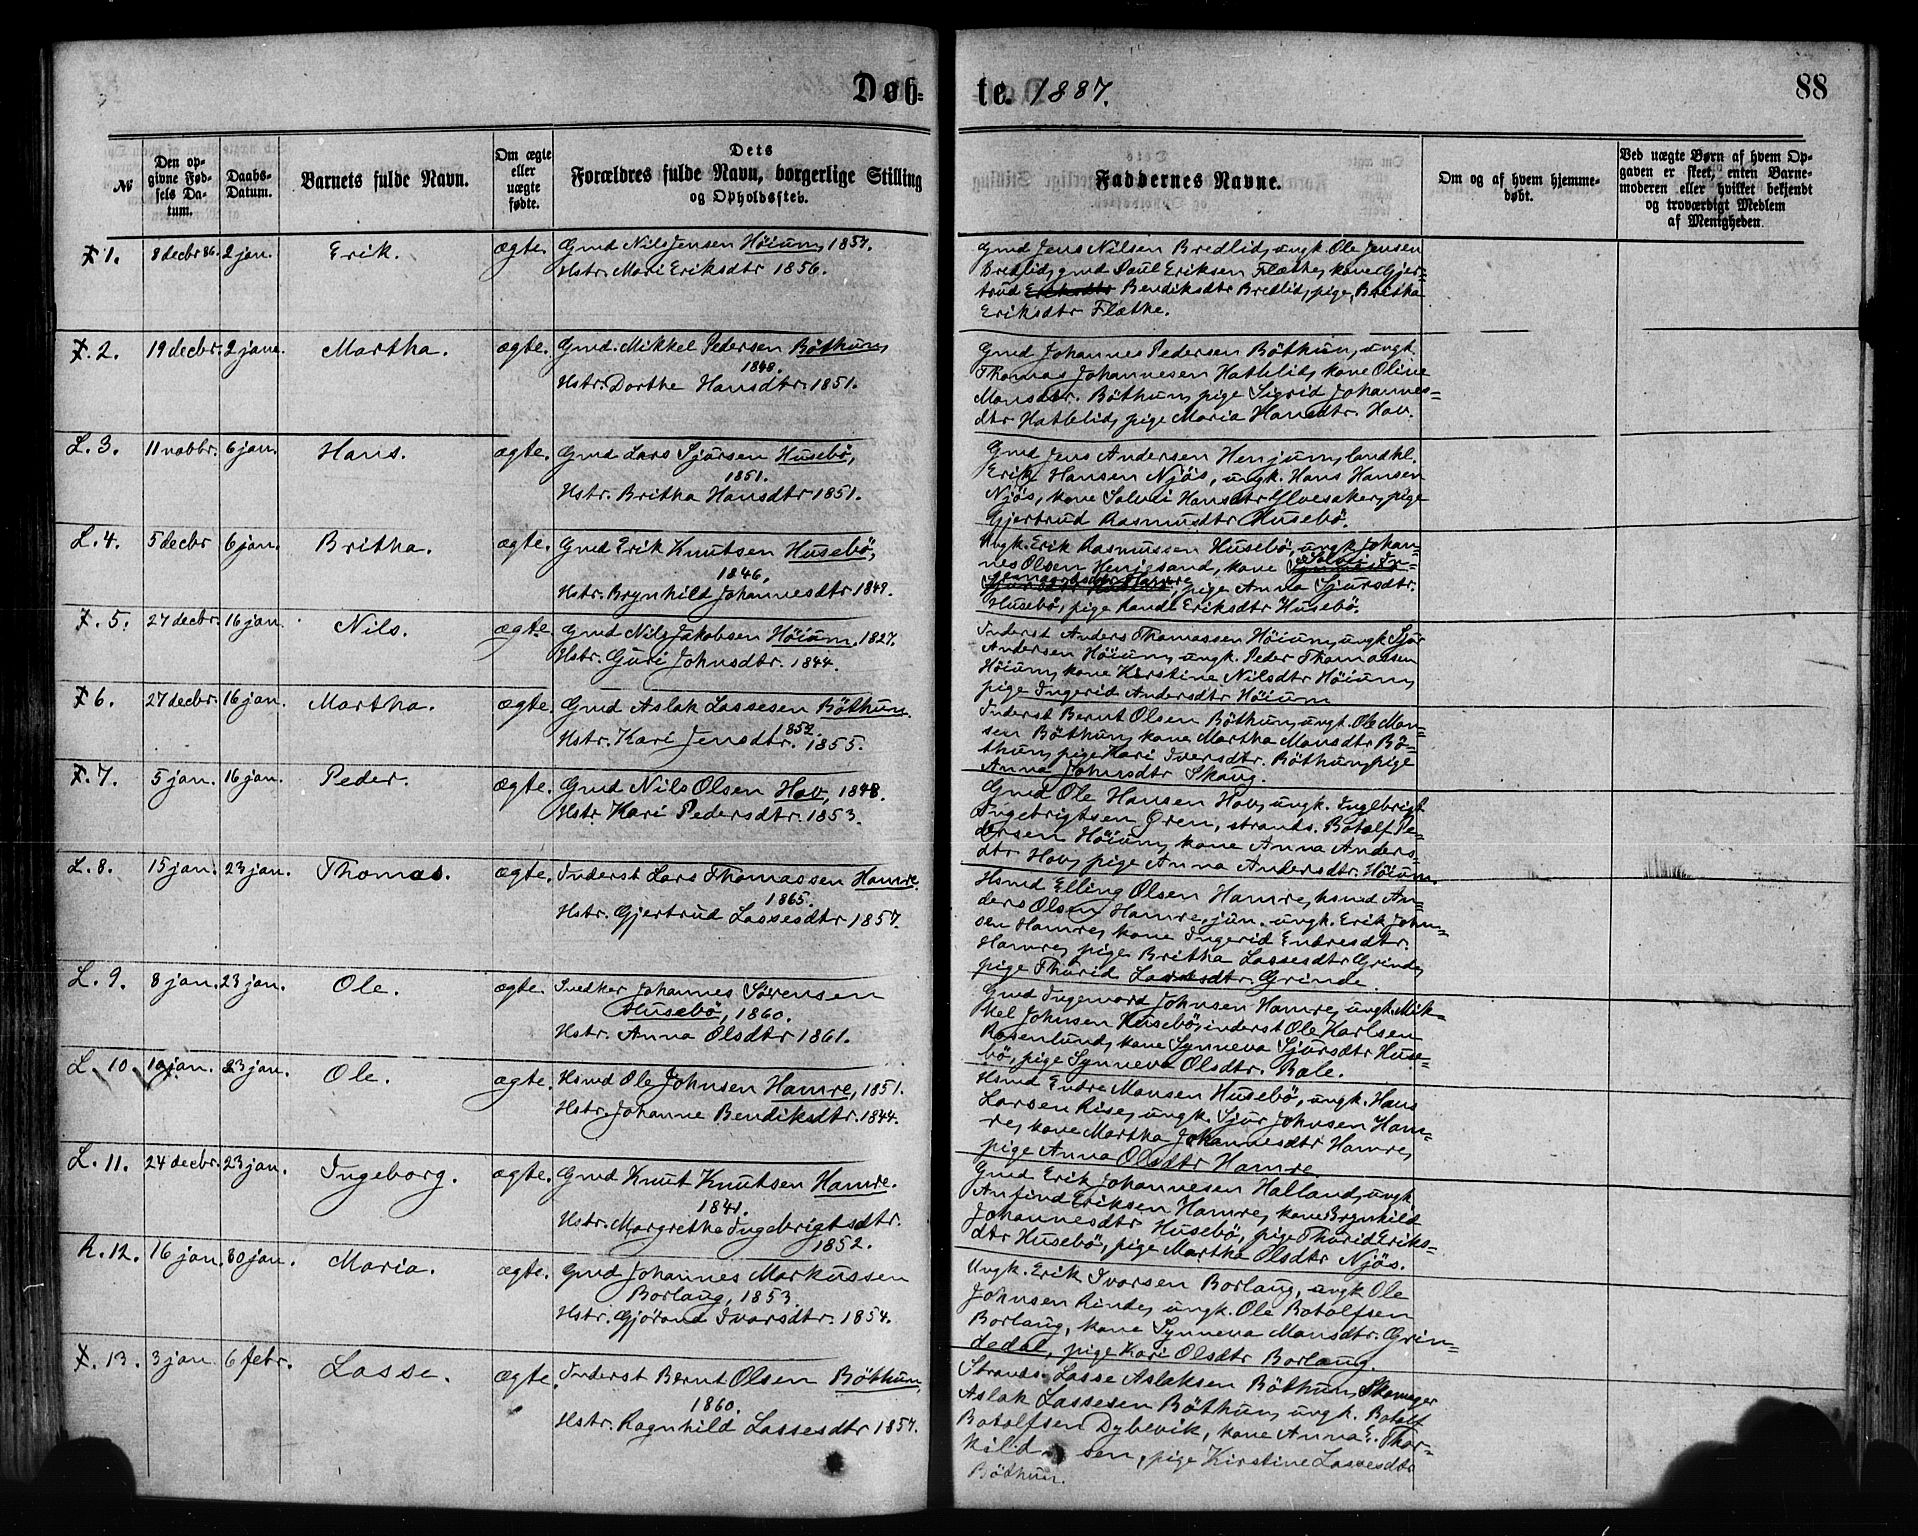 Døb-
te. 1887.
88
№
Den op-
givne Fød-
sels Da-
tum.
Daabs-
Datum.
Barnets fulde Navn.
Om ægte
eller
uægte
fødte.
Dets
Forældres fulde Navn, borgerlige Stilling
og Opholdssted.
Faddernes Navne.
Om og af hvem hjemme-
døbt.
Ved uægte Børn af hvem Op-
gaven er skeet, enten Barne-
moderen eller hvilket bekjendt
og troværdigt Medlem
af Menigheden.
F 1. 8 decbr 86. 2 jan. Erik. ægte. Gmd Nils Jensen Höium, 1857.
Hstr. Mari Eriksdtr 1856.
Gmd Jens Nilsen Bredlid, ungk. Ole Jensen
Bredlid, gmd Paul Eriksen Flæthe, kone Gjer-
trud Eriksdtr Bendiksdtr Bredlid, pige, Britha
Eriksdtr Flæthe.
F. 2. 19 decbr. 2 jan. Martha. ægte. Gmd. Mikkel Pedersen Böthun,
1848.
Hstr. Dorthe Hansdtr. 1851.
Gmd Johannes Pedersen Böthun, ungk.
Thomas Johannesen Hatlelid, kone Oline
Monsdtr. Böthun, pige Sigrid Johannes-
dtr Hatlelid, pige Maria Hansdtr. Hov.
L. 3. 11 novbr. 6 jan. Hans. ægte. Gmd Lars Sjursen Husebö,
1851.
Hstr. Britha Hansdtr 1851.
Gmd Jens Andersen Henjum, landhl.
Erik Hansen Njös, ungk. Hans Hansen
Njös, kone Solvei Hansdtr Ylvesaker, pige
Gjertrud Rasmusdtr Husebö.
L. 4. 5 decbr 6 jan. Britha. ægte. Gmd Erik Knutsen Husebö,
1846.
Hstr. Brynhild Johannesdtr 1849.
Ungk. Erik Rasmussen Husebö, ungk Johan-
nes Olsen Henjesand, kone Solvei In-
pige Anna Sjursdtr.
Husebö, pige Randi Eriksdtr Husebö.
F. 5. 27 decbr. 16 jan. Nils. ægte. Gmd Nils Jakobsen Höium, 1827.
Hstr. Guri Johnsdtr. 1844.
Inderst Anders Thomassen Höium, ungk Sjur
Andersen Höium, ungk. Peder Thomassen
Höium, kone Kirstine Nilsdtr Höium,
pige Ingerid Andersdtr Höium
F 6. 27 decbr. 16 jan. Martha. ægte. Gmd Aslak Lassesen Böthun.
1852.
Hstr. Kari Jensdtr. 1855.
Inderst Bernt Olsen Böthun, ungk. Ole Mon-
sen Böthun, kone Martha Monsdtr Bö-
thun, pige Kari Iversdtr. Böthun, pige
Anna Johnsdtr Skaug.
F. 7. 5 jan. 16 jan. Peder. ægte. Gmd Nils Olsen Hov, 1848.
Hstr Kari Pedersdtr. 1853.
Gmd Ole Hansen Hov, ungk. Ingebrigt
Ingebrigtsen Øren, strands. Botolf Pe-
dersen Höium, kone Anna Anders-
dtr Hov, pige Anna Andersdtr. Höium.
L. 8. 15 jan. 23 jan. Thomas. ægte. Inderst Lars Thomassen Hamre.
1865.
Hstr. Gjertrud Lassesdtr 1857.
Hsmd Elling Olsen Hamre, hsmd An-
ders Olsen Hamre, jun. ungk. Erik John-
sen Hamre, kone Ingerid Endresdtr.
Hamre, pige Britha Lassesdtr Grinde,
pige Thurid Lassesdtr. Grinde.
L. 9. 8 jan. 23 jan. Ole. ægte. Snedker Johannes Sörensen
Husebö, 1860.
Hstr. Anna Olsdtr 1861.
Gmd Ingemard Johnsen Hamre, ungk. Mik-
kel Johnsen Husebö, inderst Ole Karlsen
Rosenlund, kone Synneva Sjursdtr Huse-
bö, pige Synneva Olsdtr. Bale.
L. 10 10 jan. 23 jan. Ole. ægte. Hsmd Ole Johnsen Hamre, 1851.
Hstr. Johanne Bendiksdtr. 1844.
Hsmd Endre Monsen Husebö, ungk. Hans
Larsen Rise, ungk. Sjur Johnsen Ham-
re, kone Martha Johannesdtr Hamre,
pige Anna Olsdtr Hamre
L. 11. 24 decbr. 23 jan. Ingeborg. ægte. Gmd Knut Knutsen Hamre.
1841.
Hstr. Margrethe Ingebrigtsdtr.
1852.
Gmd Erik Johannesen Halland, ungk
Anfind Eriksen Hamre, kone Brynhild
Johannesdtr Husebö, pige Thurid Eriks-
dtr Husebö, pige Martha Olsdtr Njös.
R. 12. 16 jan. 30 jan. Maria. ægte. Gmd Johannes Markussen
Borlaug, 1853.
Hstr. Gjörond Ivarsdtr. 1854.
Ungk. Erik Ivarsen Borlaug, ungk Ole
Johnsen Rinde, ungk. Ole Botolfsen
Borlaug, kone Synneva Monsdtr. Grin-
dedal, pige Kari Olsdtr Borlaug.
F. 13. 3 jan. 6 febr. Lasse. ægte. Inderst Bernt Olsen Böthun,
1860.
Hstr. Ragnhild Lassesdtr 1857.
Strands. Lasse Aslaksen Böthun, Skomager
Aslak Lassesen Böthun, ungk. Botolf
Botolfsen Dybevik, kone Anna E. Thor-
kildsen, pige Kirstine Lassesdtr
Böthun.